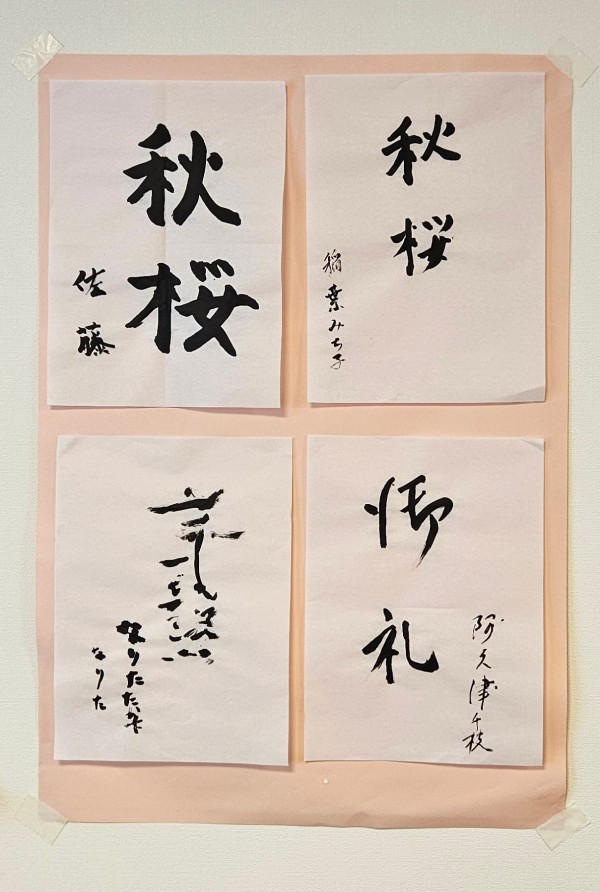 秋桜
佐藤
秋桜
稲葉みち子
なりた
御礼
阿久津千枝